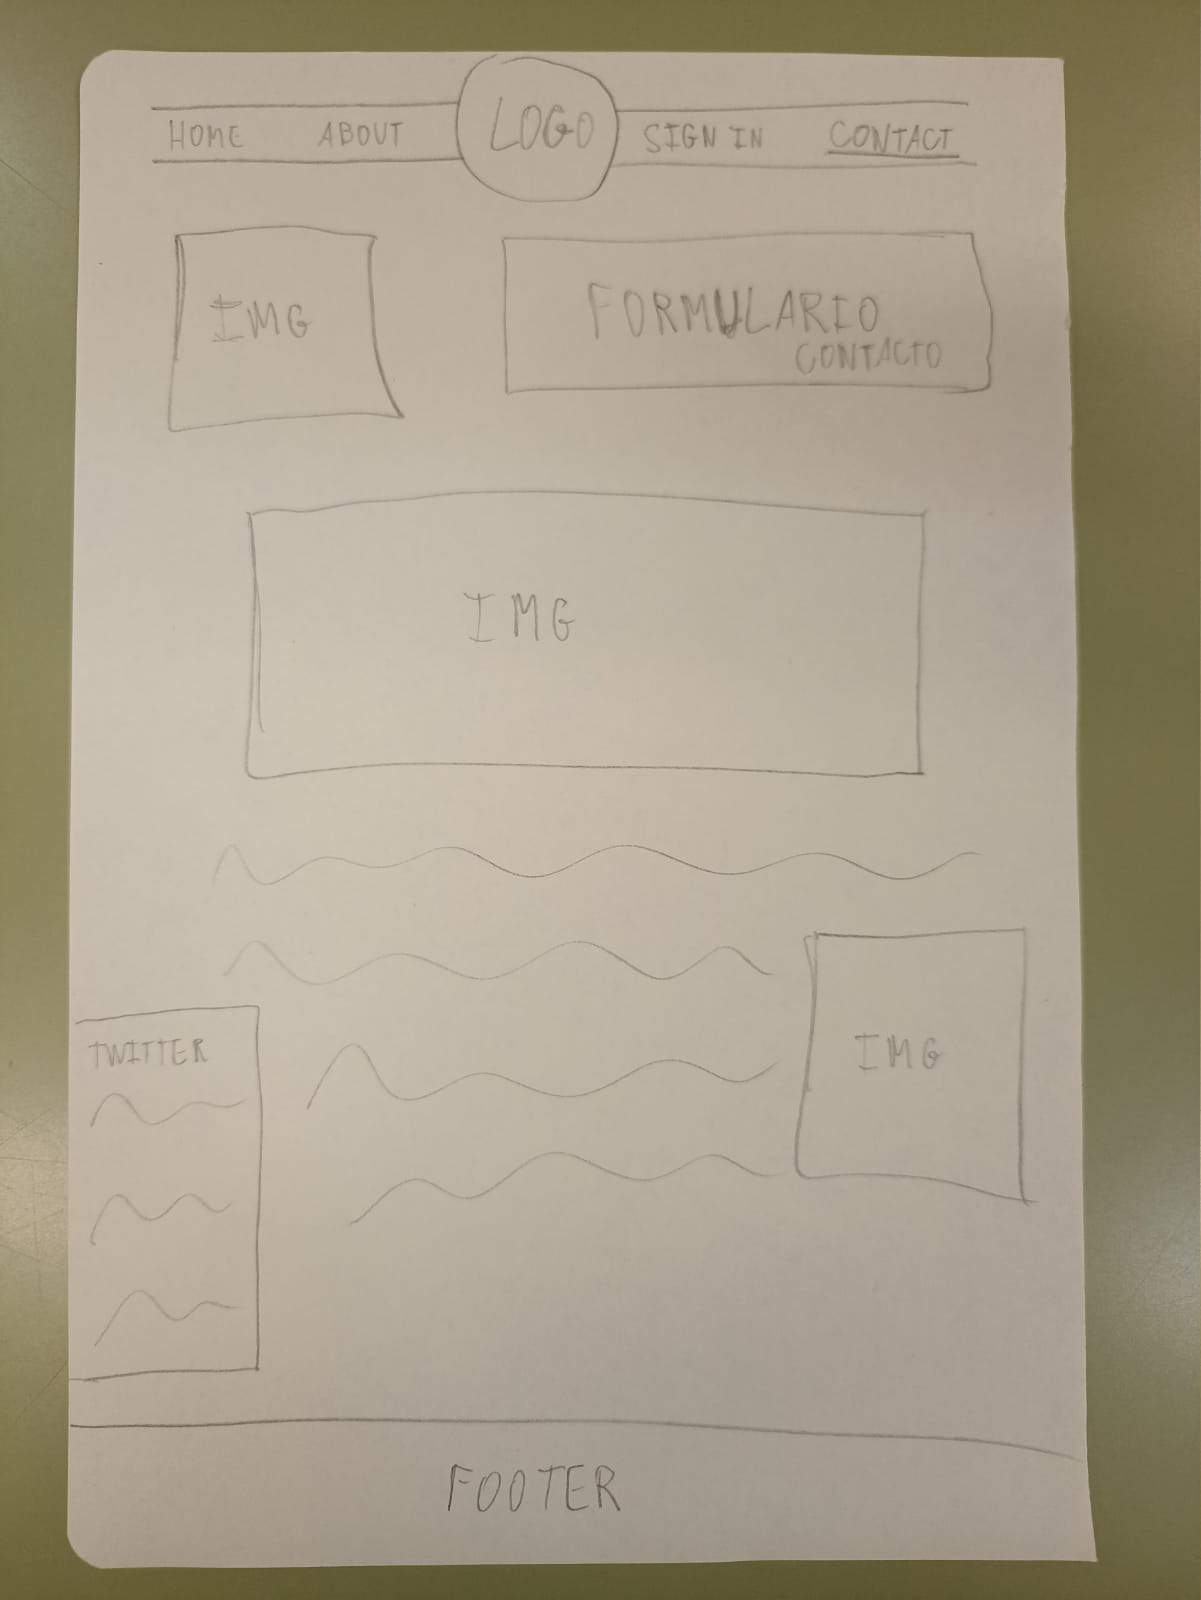 HOME ABOUT LOGO SIGN IN CONTACT
IMG
FORMULARIO
CONTACTO
IMG
IMG
TWITTER
FOOTER